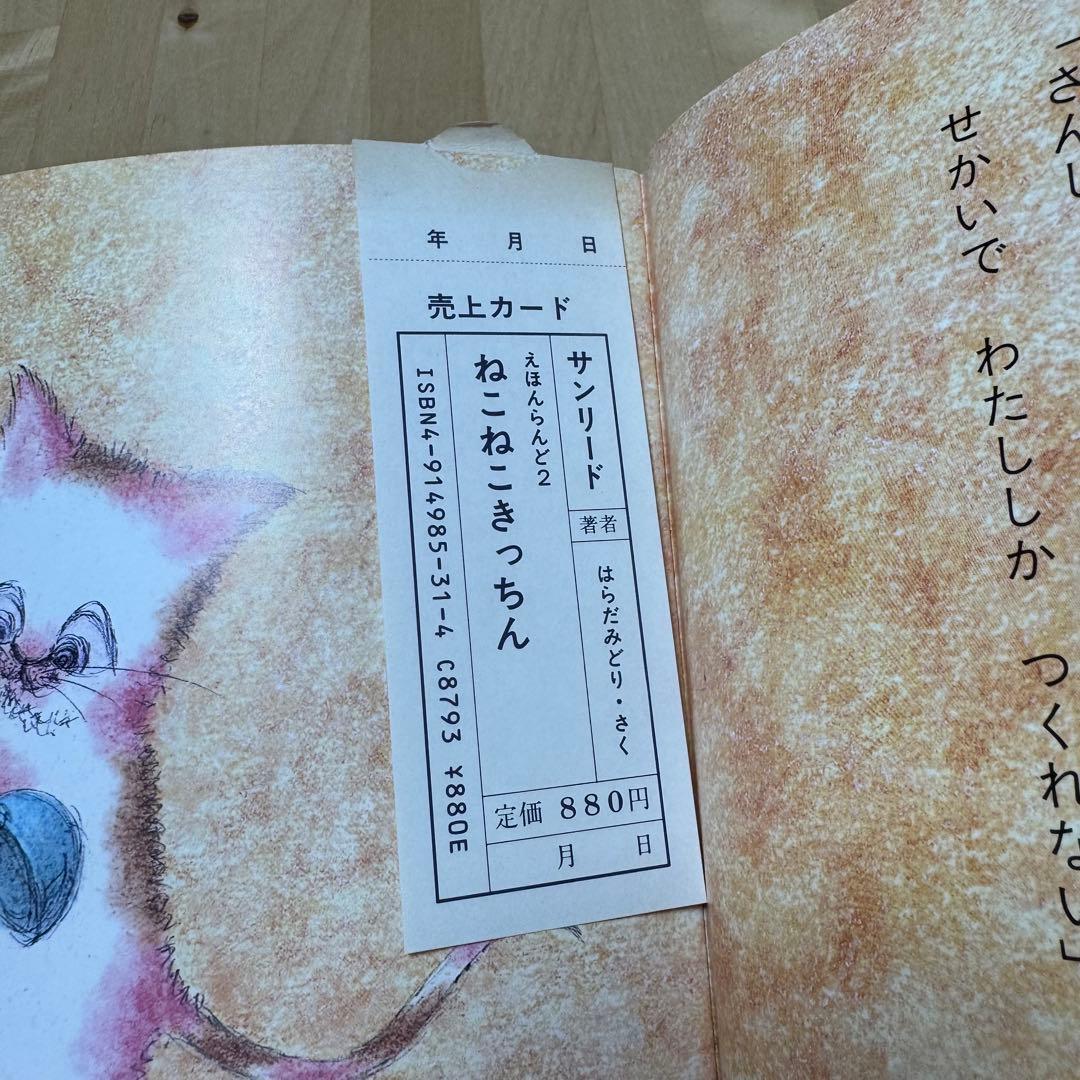 せかいで　わたししか　つくれない」
年　月　日
売上カード
サンリード
著者
はらだみどり・さく
えほんらんど2
ねこねこきっちん
ISBN4-914985-31-4 C8793 ¥880E
定価 880円
月　日